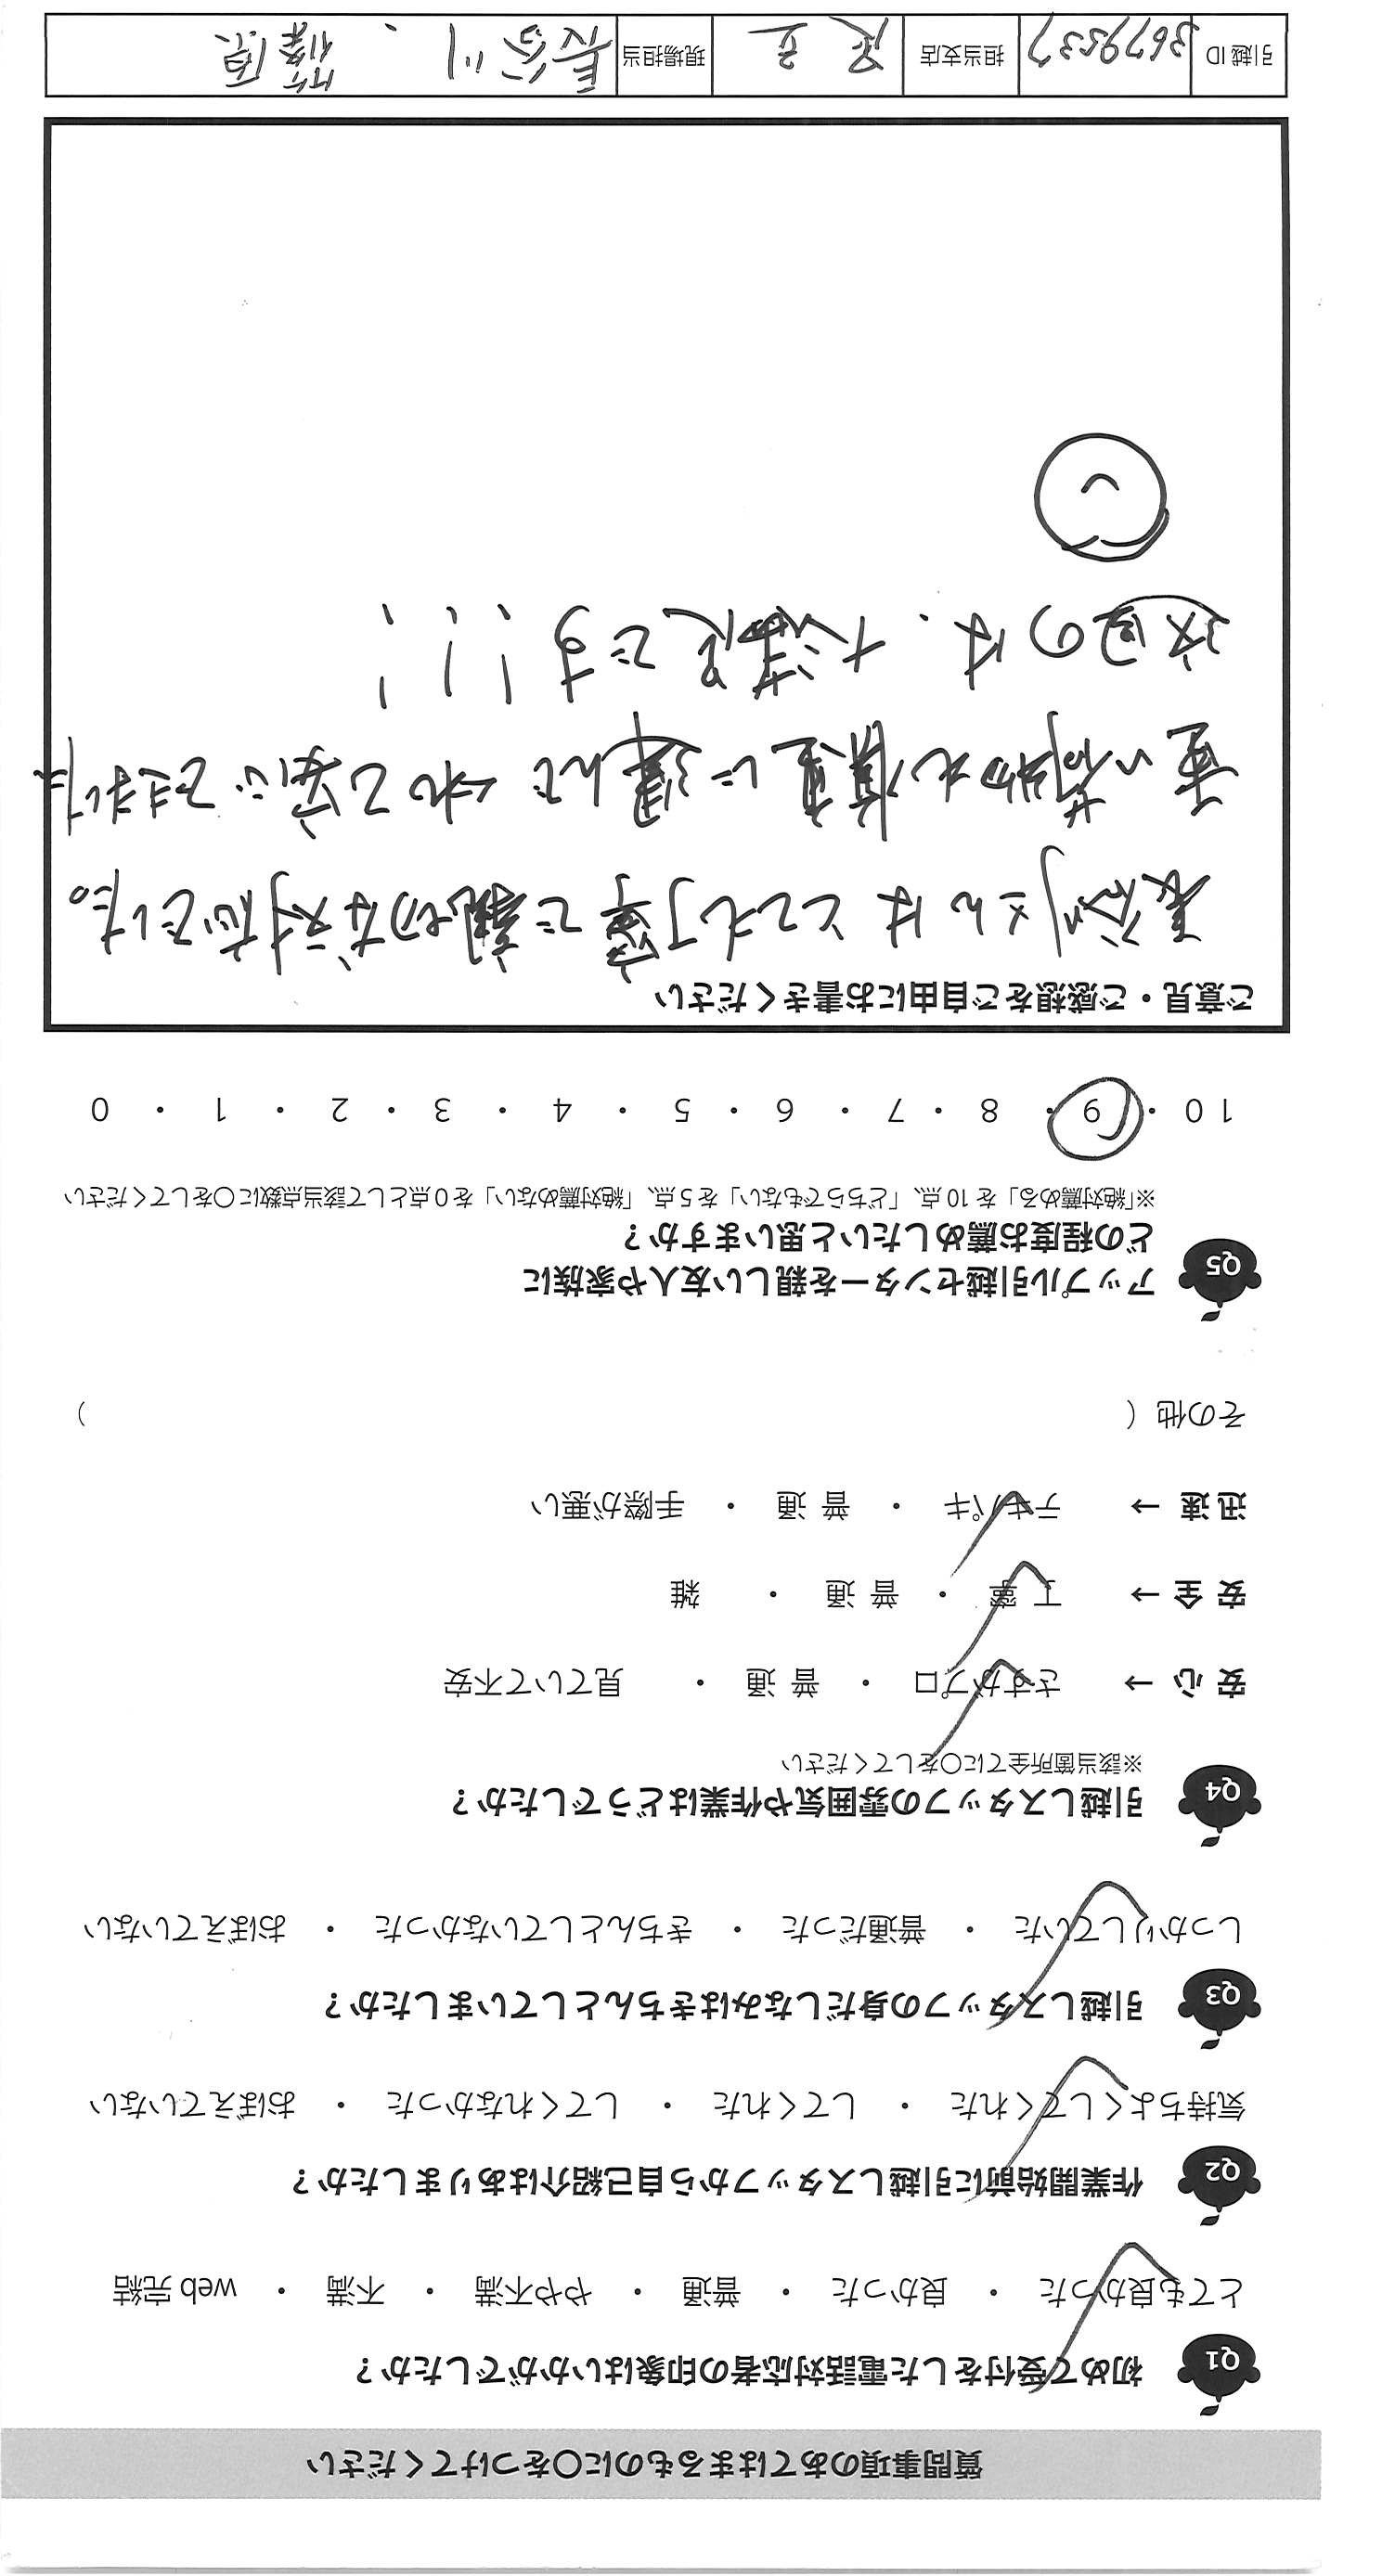 質問事項のあてはまるものに〇をつけてください
Q1 初めて受付をした電話対応者の印象はいかがでしたか？
とても良かった ・ 良かった ・ 普通 ・ やや不満 ・ 不満 ・ web 完結
Q2 作業開始前に引越しスタッフから自己紹介はありましたか？
気持ちよくしてくれた ・ してくれた ・ してくれなかった ・ おぼえていない
Q3 引越しスタッフの身だしなみはきちんとしていましたか？
しっかりしていた ・ 普通だった ・ きちんとしていなかった ・ おぼえていない
Q4 引越しスタッフの雰囲気や作業はどうでしたか？
※該当箇所全てに〇をしてください
安 心 → さすがプロ ・ 普 通 ・ 見ていて不安
安 全 → 丁 寧 ・ 普 通 ・ 雑
迅 速 → テキパキ ・ 普 通 ・ 手際が悪い
その他（ ）
Q5 アップル引越センターを親しい友人や家族に
どの程度お薦めしたいと思いますか？
※「絶対薦める」を 10 点、「どちらでもない」を 5 点、「絶対薦めない」を 0 点として該当点数に〇をしてください
10 ・ 9 ・ 8 ・ 7 ・ 6 ・ 5 ・ 4 ・ 3 ・ 2 ・ 1 ・ 0
ご意見・ご感想をご自由にお書きください
長谷川さんはとても丁寧で親切な対応でした。
重い荷物も慎重に運んでくれて安心できました
次回のは、大満足です!!!
引越 ID 3679537 担当支店 足立 現場担当 長谷川、篠原